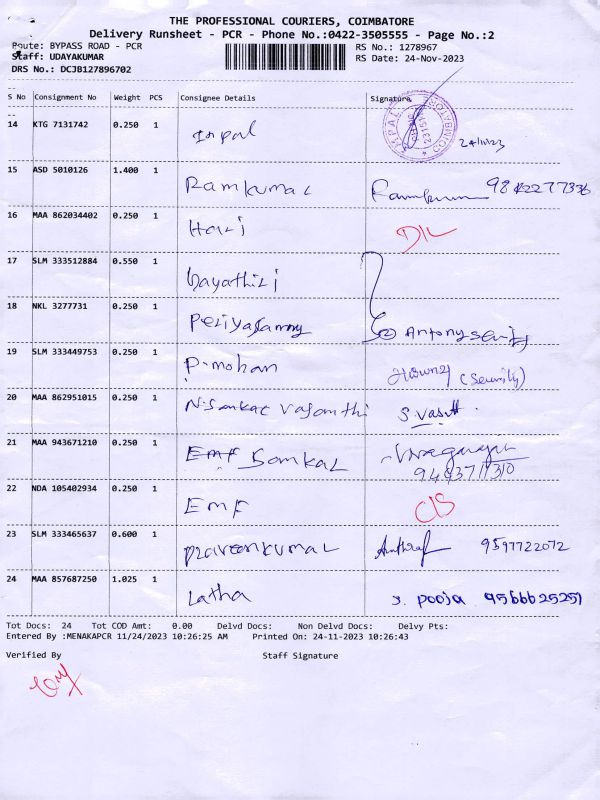 THE PROFESSIONAL COURIERS, COIMBATORE
Delivery Runsheet - PCR - Phone No.:0422-3505555 - Page No.:2
Route: BYPASS ROAD - PCR RS No.: 1278967
Staff: UDAYAKUMAR RS Date: 24-Nov-2023
DRS No.: DCJB127896702
S No Consignment No Weight PCS Consignee Details Signature
14 KTG 7131742 0.250 1 Inpal 24/11/23
15 ASD 5010126 1.400 1 Ramkumar 9842277336
16 MAA 862034402 0.250 1 Hari D/L
17 SLM 333512884 0.550 1 Gayathiri
18 NKL 3277731 0.250 1 Periyasammy Antony
19 SLM 333449753 0.250 1 P. mohan (Security)
20 MAA 862951015 0.250 1 N. Sankar Vasanthi S. Vasa
21 MAA 943671210 0.250 1 EMF Sankar
22 NDA 105402934 0.250 1 EMF C/S
23 SLM 333465637 0.600 1 Praveenkumar 9597722072
24 MAA 857687250 1.025 1 Latha S. Pooja 9566625251
Tot Docs: 24 Tot COD Amt: 0.00 Delvd Docs: Non Delvd Docs: Delvy Pts:
Entered By :MENAKAPCR 11/24/2023 10:26:25 AM Printed On: 24-11-2023 10:26:43
Verified By Staff Signature